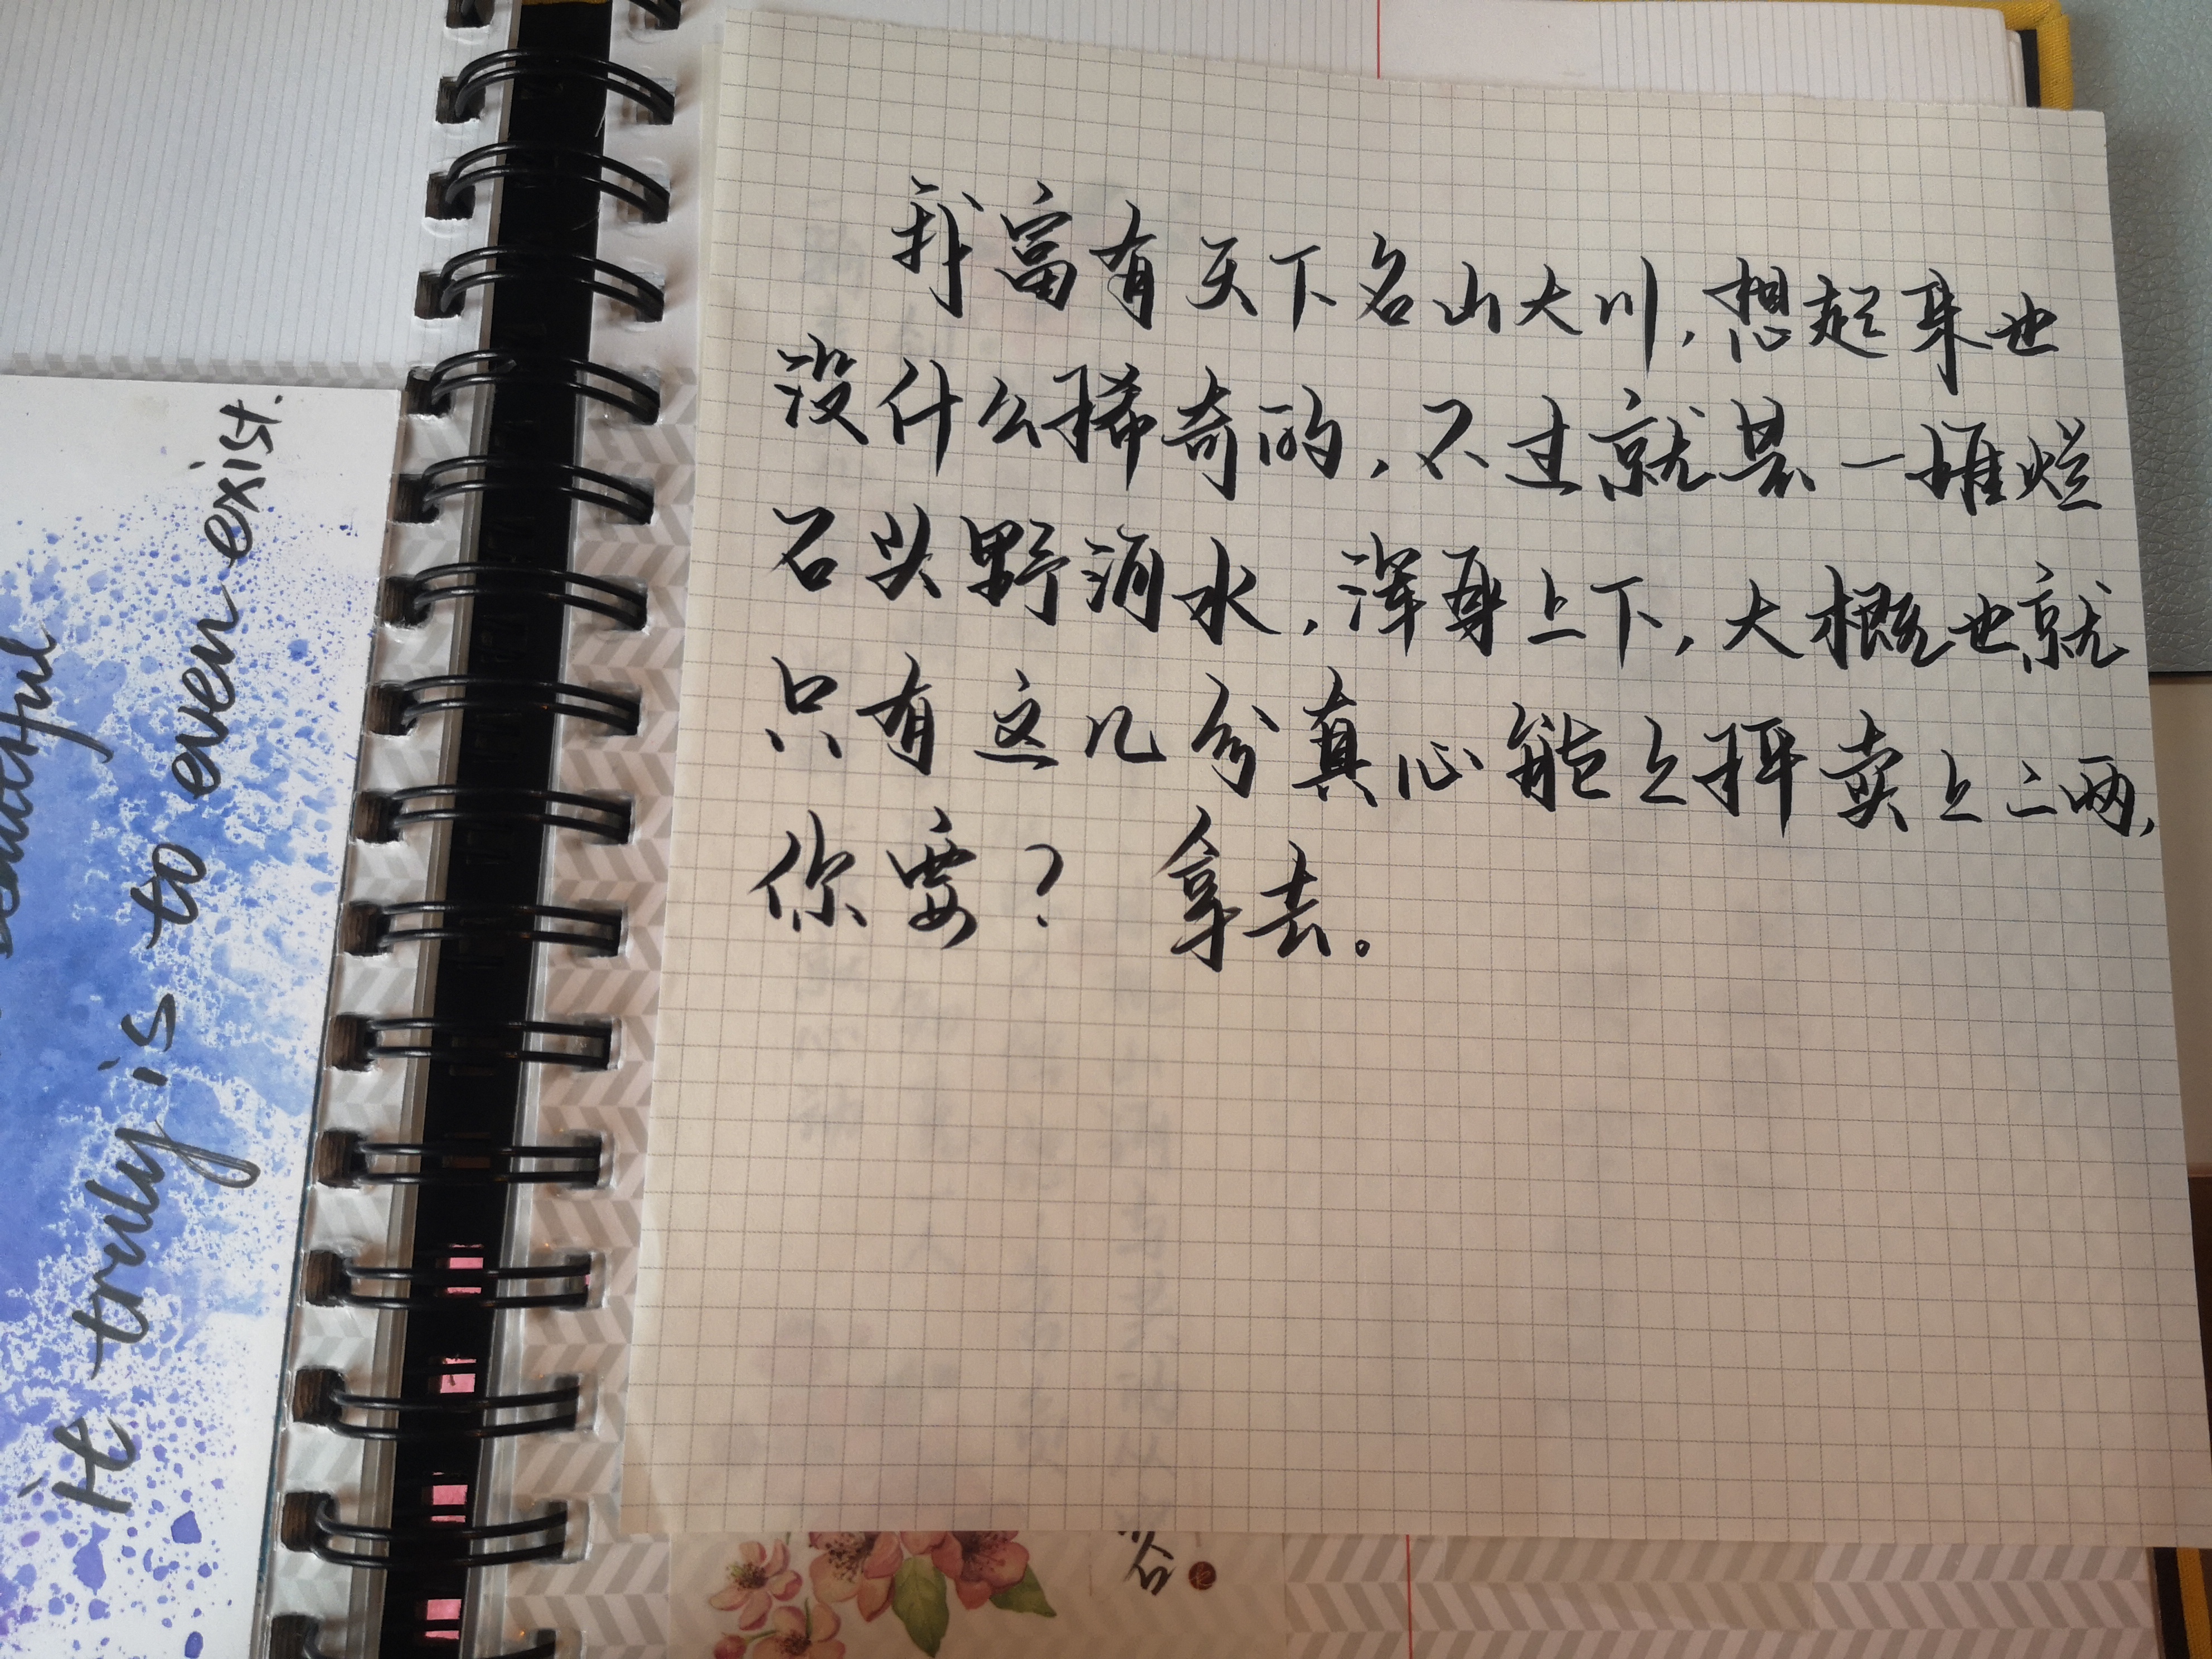 我富有天下名山大川，想起来也
没什么稀奇的，不过就是一堆烂
石头野河水，浑身上下，大概也就
只有这几分真心能上秤卖上二两，
你要？ 拿去。
it truly is to even exist.
beautiful
谷